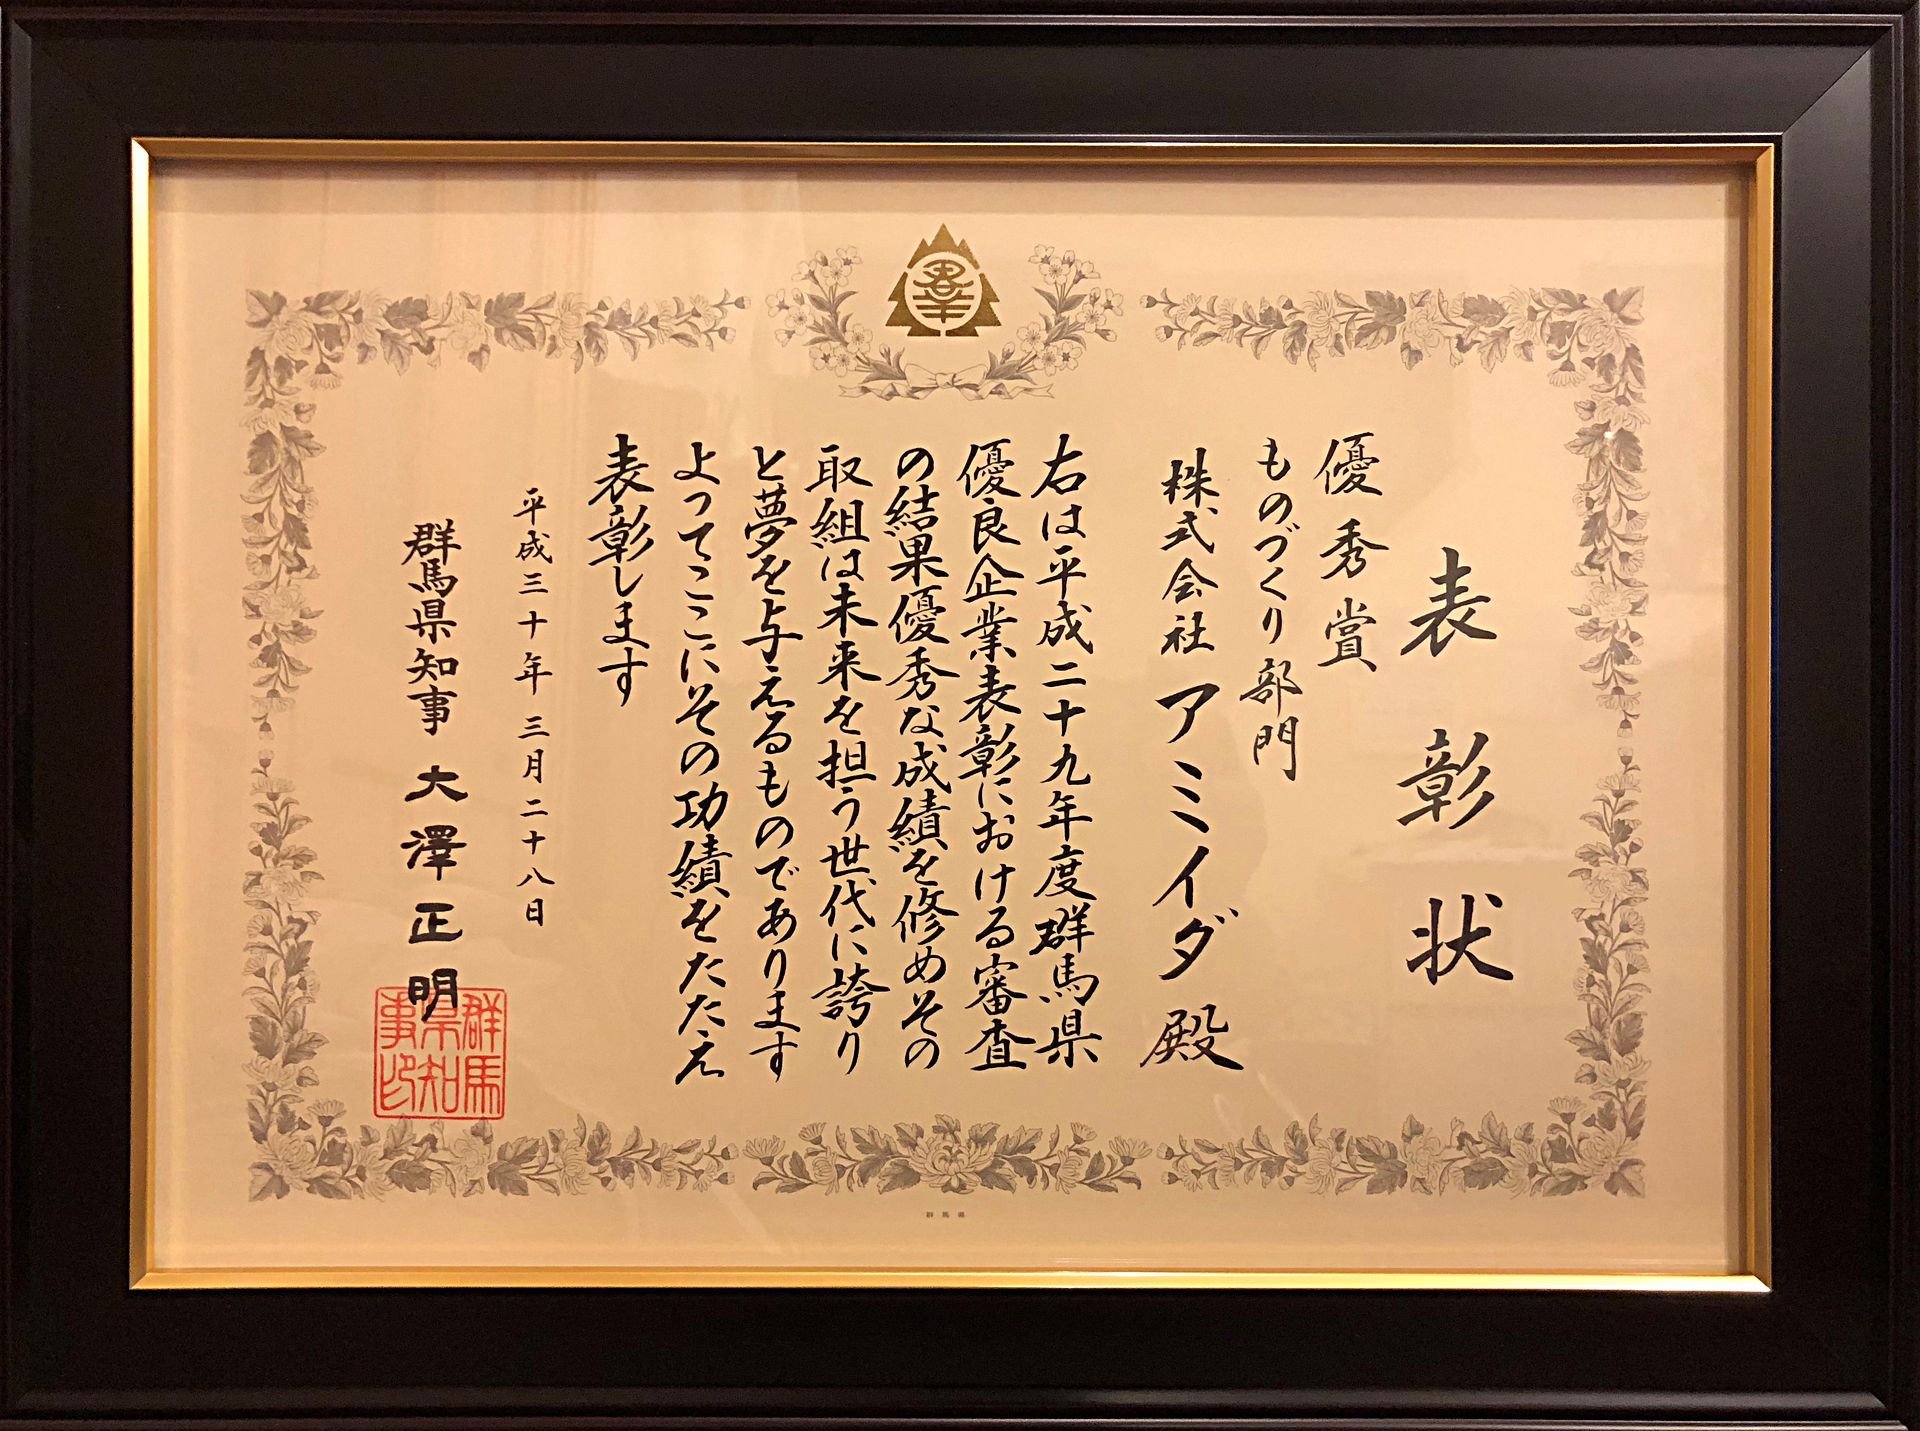 表彰状
優秀賞
ものづくり部門
株式会社アミイダ殿
右は平成二十九年度群馬県
優良企業表彰における審査
の結果優秀な成績を修めその
取組は未来を担う世代に誇り
と夢を与えるものであります
よってここにその功績をたたえ
表彰します
平成三十年三月二十八日
群馬県知事 大澤正明
群馬県知事印
群馬県